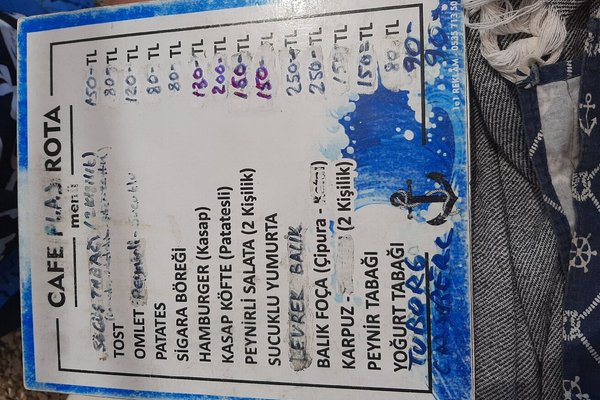 CAFE PLAJ ROTA
menü
150-TL
TOST 80-TL
OMLET 120-TL
PATATES 80-TL
SİGARA BÖREĞİ 80-TL
HAMBURGER (Kasap) 130-TL
KASAP KÖFTE (Patatesli) 200-TL
PEYNİRLİ SALATA (2 Kişilik) 150-TL
SUCUKLU YUMURTA 150-TL
LEVREK BALIK 250-TL
BALIK FOÇA (Çipura - 250-TL
KARPUZ (2 Kişilik) TL
PEYNİR TABAĞI 150-TL
YOĞURT TABAĞI 80-TL
TUBORG 90-
90-